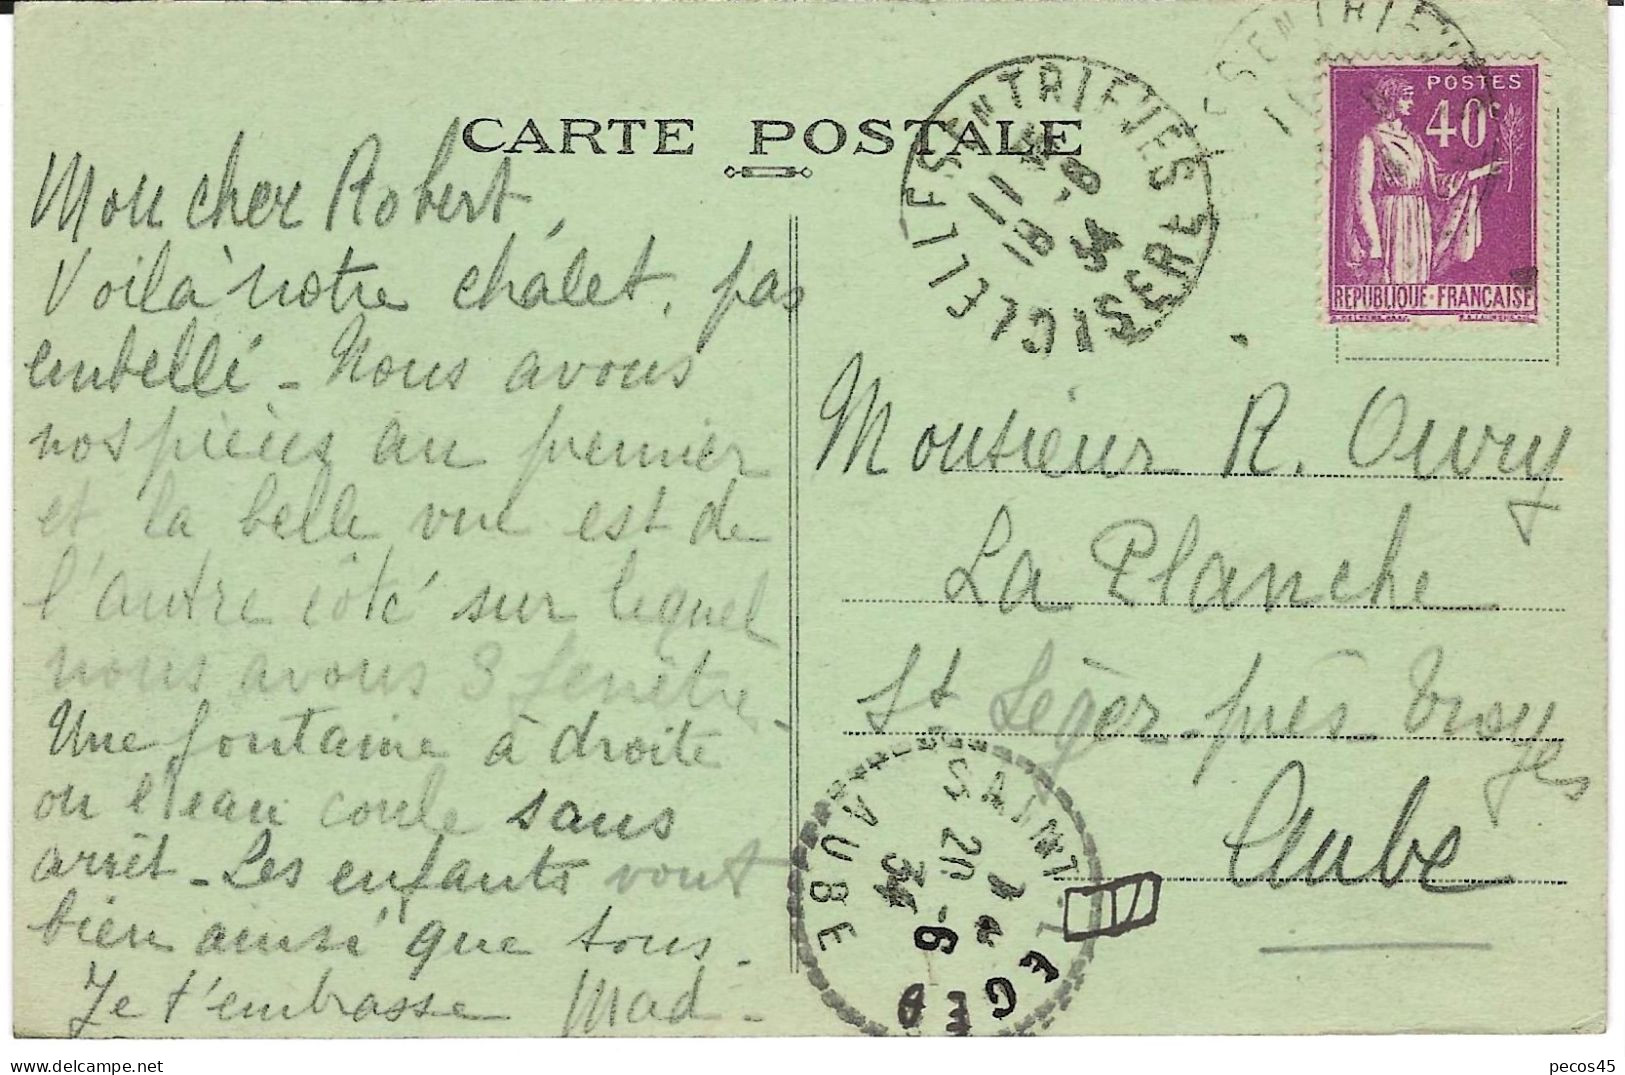 CARTE POSTALE
Mon cher Robert,
Voilà notre châlet, pas
embelli - Nous avons
nos pièces au premier
et la belle vue est de
l'autre côté sur lequel
nous avons 3 fenêtres -
Une fontaine à droite
ou l'eau coule sans
arrêt - Les enfants vont
bien ainsi que tous -
Je t'embrasse Mad -
POSTES
40c
REPUBLIQUE·FRANCAISE
CLELLES EN TRIEVES
11
18 -8
34
ISERE
Monsieur R. Ouvry
La Planche
St Léger près Troyes
Aube
SAINT LEGER
20 -8
34
AUBE
pecos45